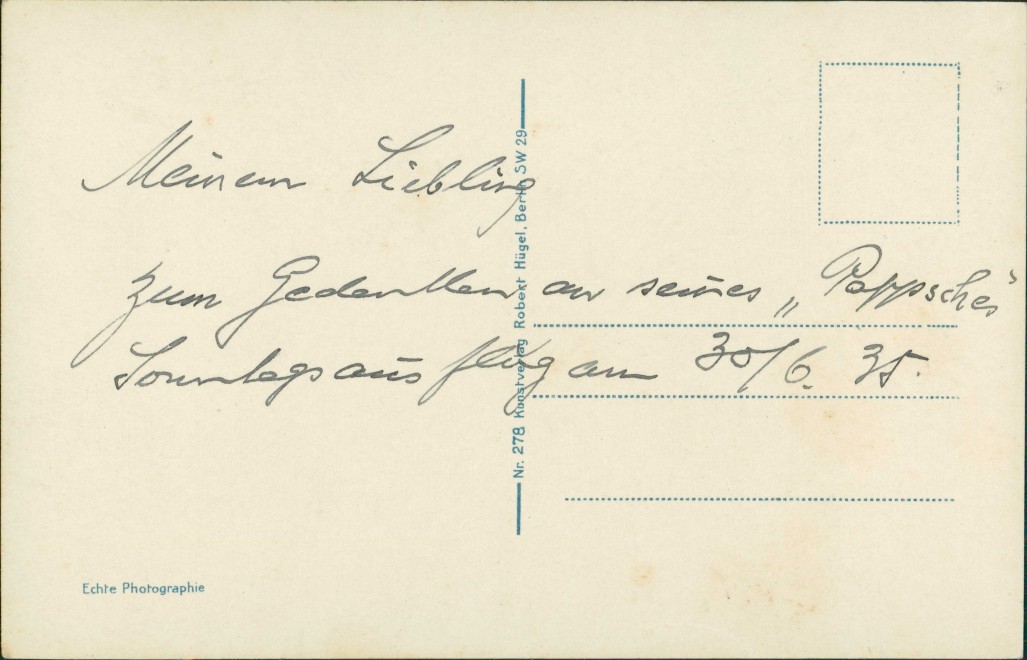 Meinem Liebling
zum Gedenken an seines „Pappsches"
Sonntagsausflug am 30/6. 35.
Nr. 278 Kunstverlag Robert Hügel, Berlin SW 29
Echte Photographie